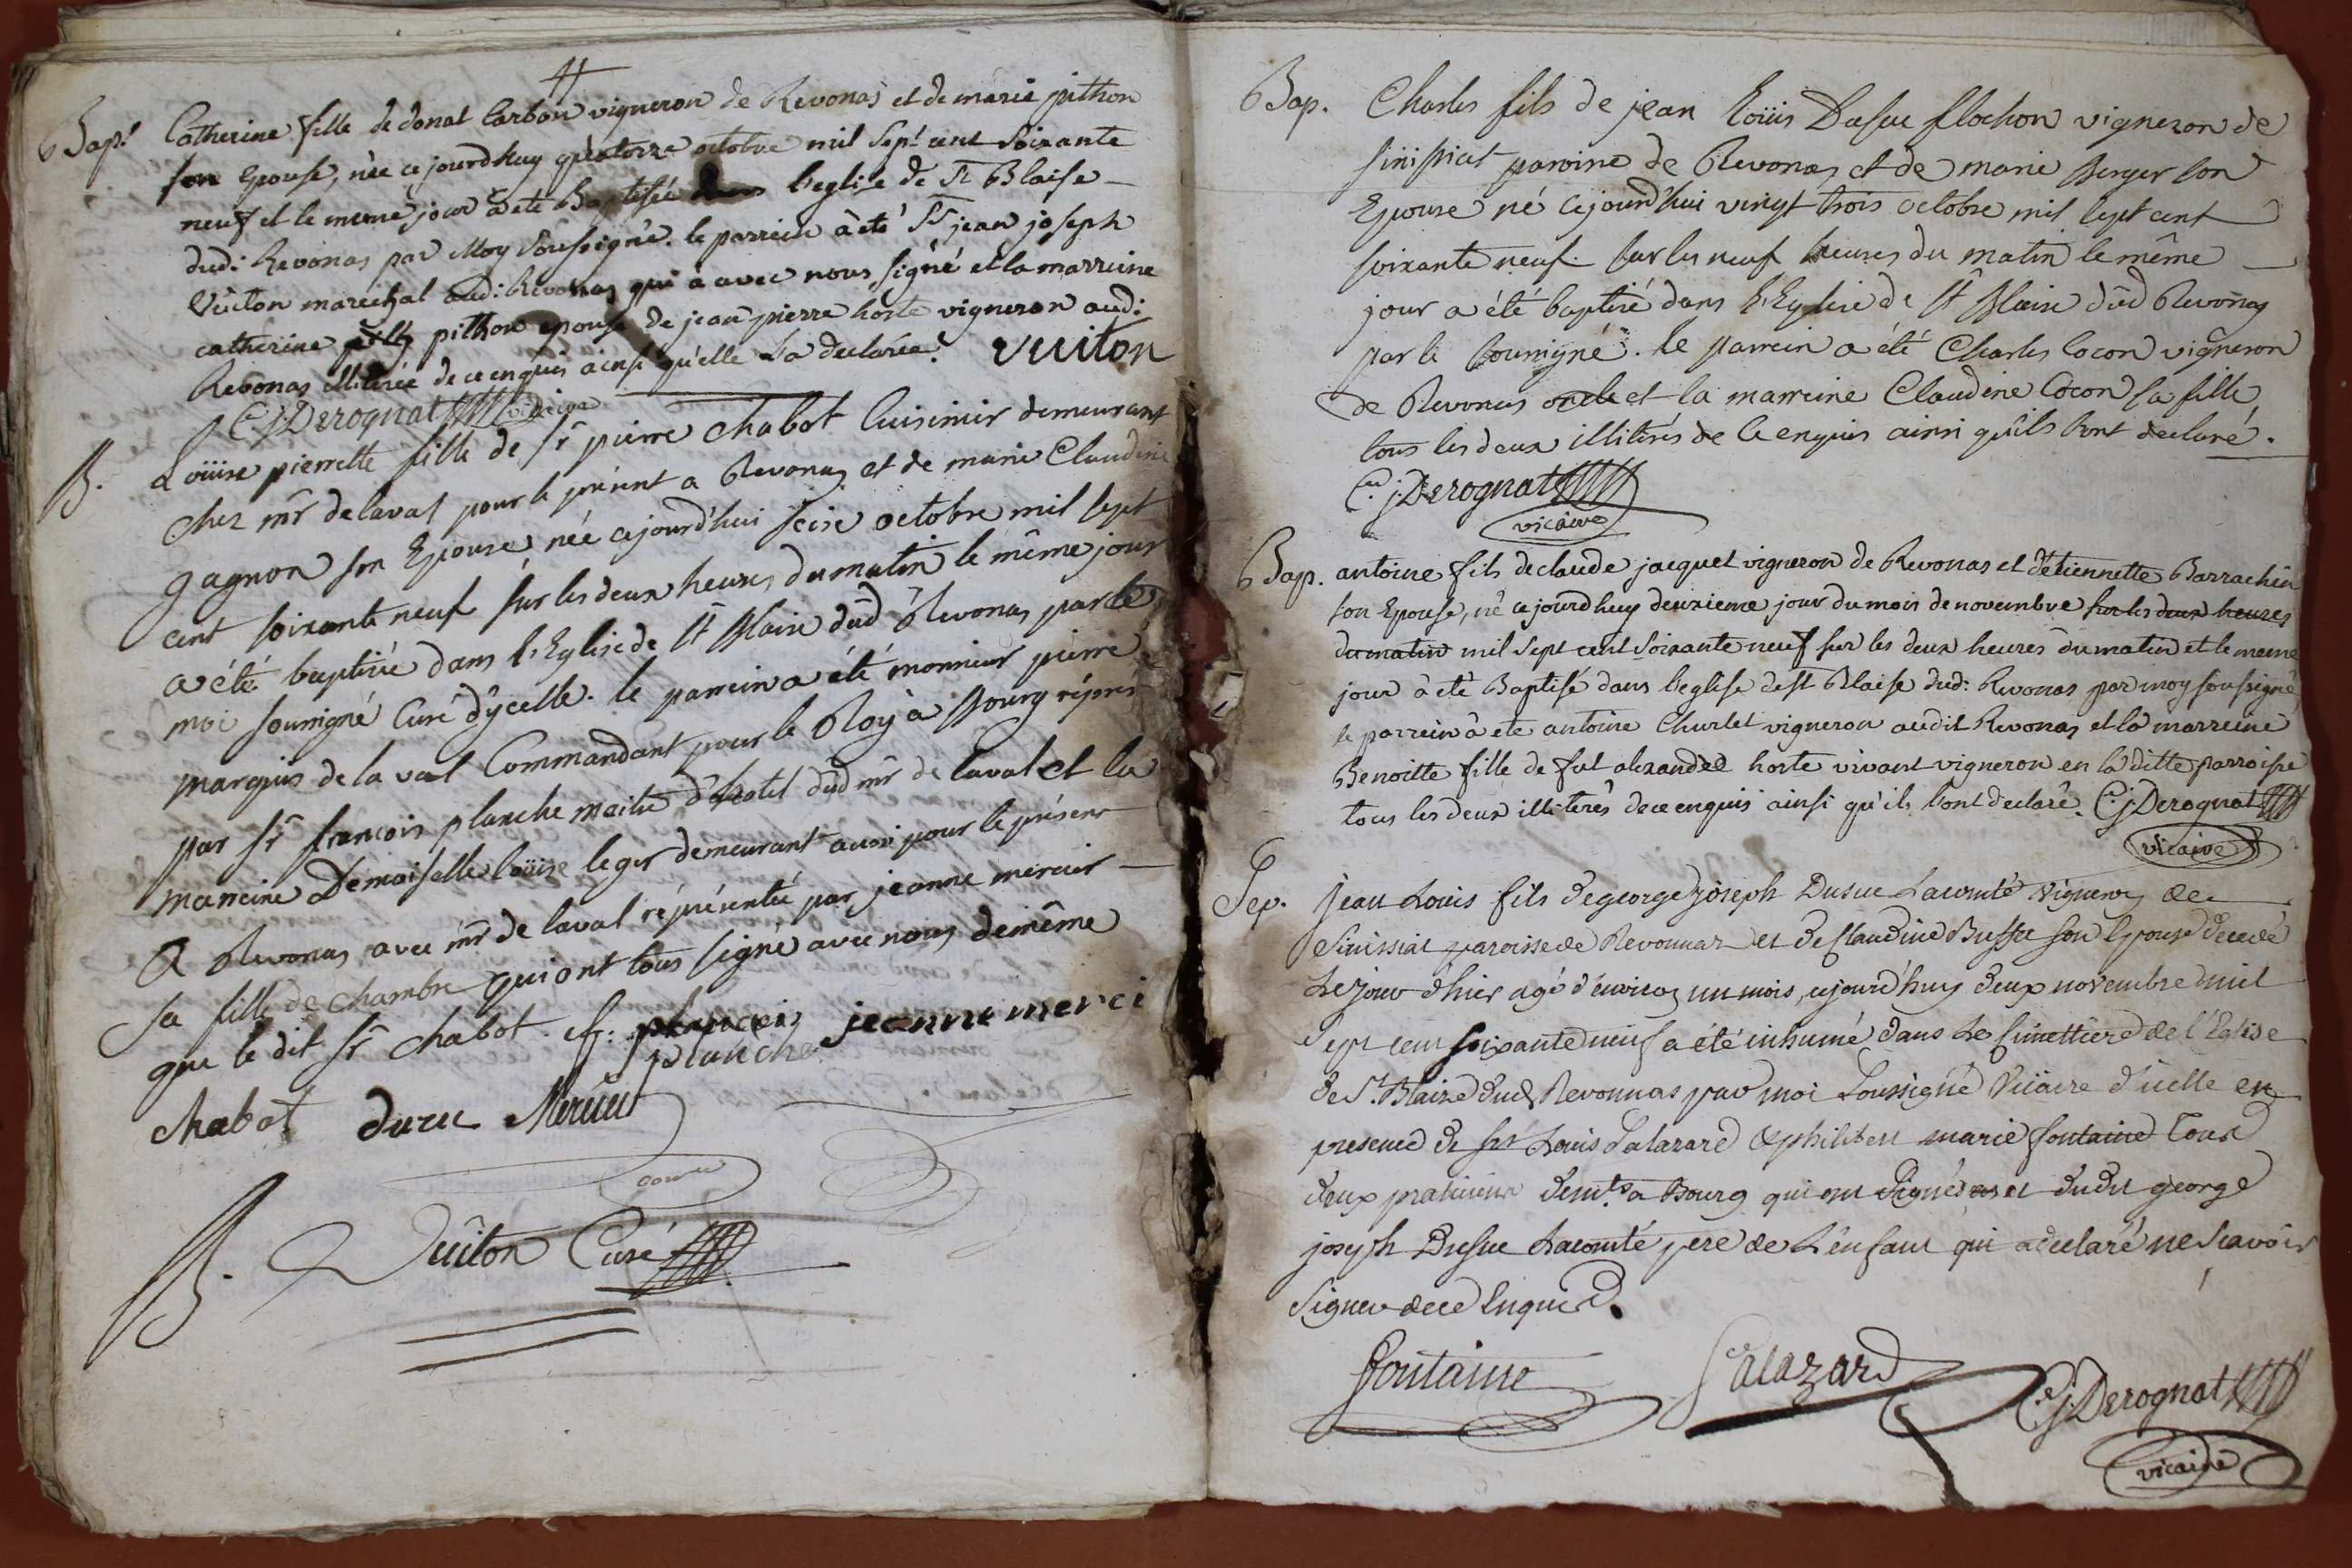 Bap.t Catherine fille de donat Carbon vigneron de Revonas et de marie pithon
son Epouse, née ce jourdhuy quatorze octobre mil Sept cent Soixante
neuf et le meme jour à été Baptisée dans l'eglise de St Blaise
dud: Revonas par Moy Soussigné. le parrein à été Sr jean joseph
Vuiton marechal aud: Revonas qui à avec nous signé et la marreine
catherine pithon epouse de jean pierre hoste vigneron aud:
Revonas illiterée de ce enquis ainsi qu'elle l'a declarée. vuiton
C j Derognat vicaire
B. Loüise pierrette fille de Sr pierre Chabot Cuisinier demeurant
chez mr delaval pour le présent a Revonas et de marie Claudine
gagnon son Epouse, née cejourd'hui seise octobre mil sept
cent soixante neuf sur les deux heures du matin le même jour
a été baptisée dans l'Eglise de St Blaise dud Revonas par le
moi soussigné Curé d'ycelle. le parrein a été monsieur pierre
marquis de la val Commandant pour le Roy à Bourg répres
par Sr francois planche maitre d'hotel dud mr de laval et la
marreine Demoiselle loüise leger demeurant aussi pour le présent
a Revonas avec mr de laval réprésentée par jeanne mercier
sa fille de chambre qui ont tous signé avec nous de même
que le dit Sr chabot. f: francois planche jeanne merci
chabot duru Mercier
Vuiton Curé
B.
Bap. Charles fils de jean Loüis Dusuc flochon vigneron de
sinissiat paroisse de Revonas et de marie Berger son
Epouse né cejourd'hui vingt trois octobre mil sept cent
soixante neuf sur les neuf heures du matin le même
jour a été baptisé dans l'Eglise de St Blaise dud Revonas
par le soussigné. le parrein a été Charles Cocon vigneron
de Revonas oncle et la marreine Claudine Cocon sa fille
tous les deux illitérés de ce enquis ainsi qu'ils l'ont declaré.
C. j. Derognat
vicaire
Bap. antoine fils de claude jacquet vigneron de Revonas et d'etiennette Barrachin
son Epouse, né ce jourdhuy deuxieme jour du mois de novembre sur les deux heures
du matin mil sept cent soixante neuf sur les deux heures du matin et le meme
jour à été Baptisé dans l'eglise de St Blaise dud: Revonas par moy soussigné
le parrein à été antoine Churlet vigneron audit Revonas et la marreine
Benoitte fille de fut alexandre hoste vivant vigneron en la ditte parroisse
tous les deux illiterés de ce enquis ainsi qu'ils l'ont declaré. C. j. Derognat
vicaire
Sep. jean Louis fils de george joseph Dusuc Lacomté vigneron de
Sinissiat paroisse de Revonnas et de Claudine Busse son Epouse décedé
Le jour d'hier agé d'environ un mois, cejourd'huy deux novembre mil
Sept cent soixante neuf a été inhumé dans Le simettiere de l'Eglise
de St. Blaize dud Revonnas par moi Soussigné Viccaire d'icelle en
presence de srs Louis Salazard & philibert marie fontaine tous
deux praticiens demts. a Bourg qui ont Signés et dudit george
joseph Dusuc Lacomté pere de L'enfant qui a declaré ne Scavoir
Signer de ce Enquis.
Fontaine Salazard C. j. Derognat
vicaire